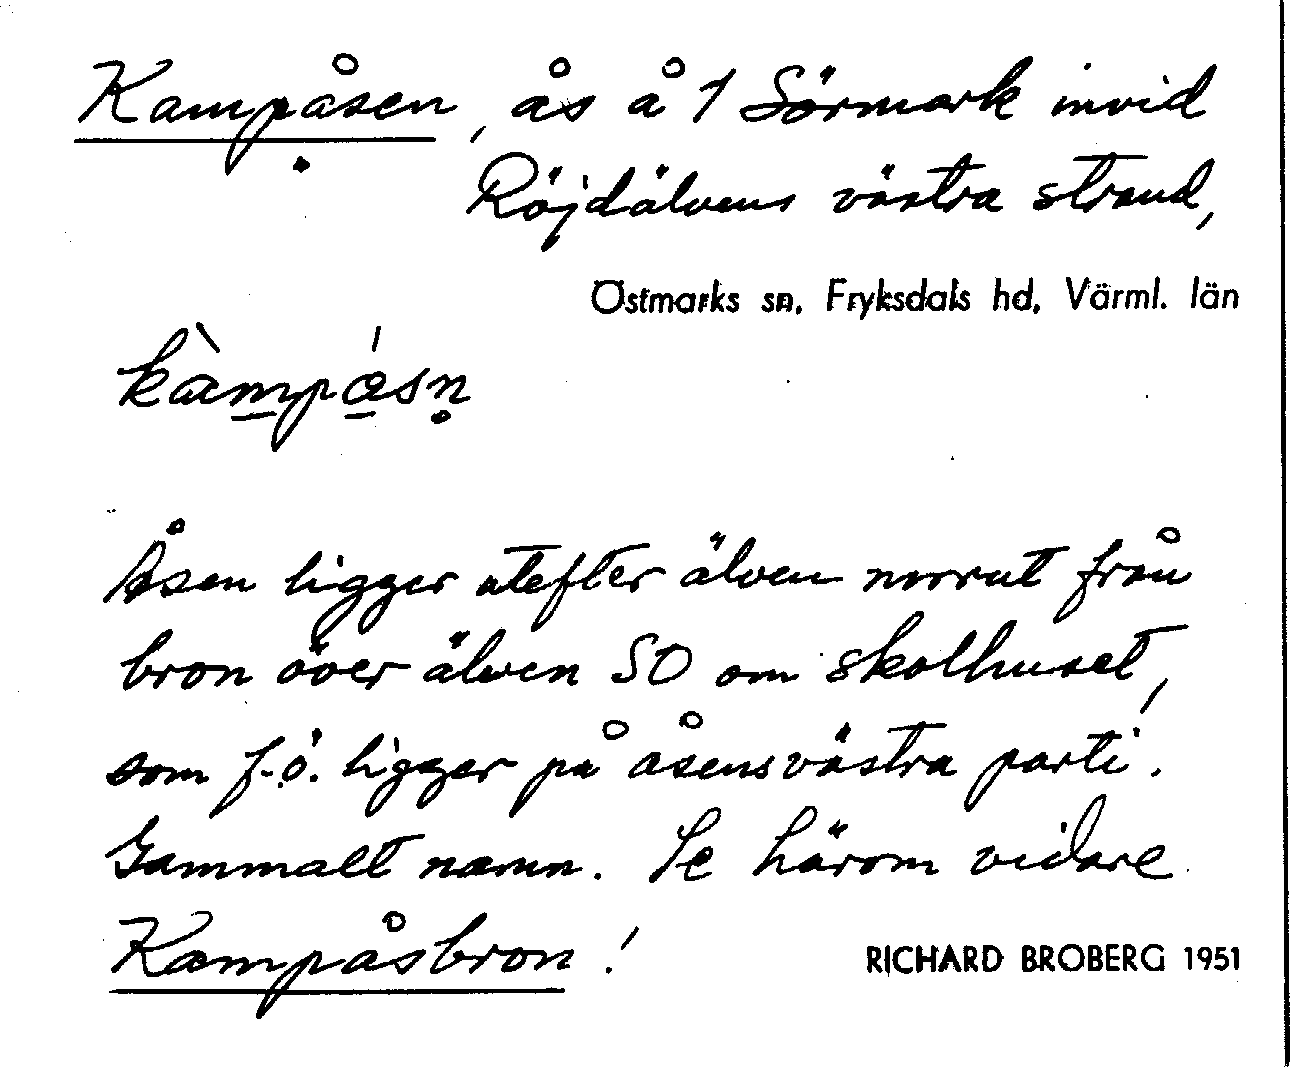 Kampåsen, ås å 1 Sörmark invid
Röjdälvens västra strand,
Östmarks sn, Fryksdals hd, Värml. län
kàmpásn̥
Åsen ligger utefter älven norrut från
bron över älven SO om skolhuset,
som f.ö. ligger på åsens västra parti.
Gammalt namn. Se härom vidare
Kampåsbron!
RICHARD BROBERG 1951